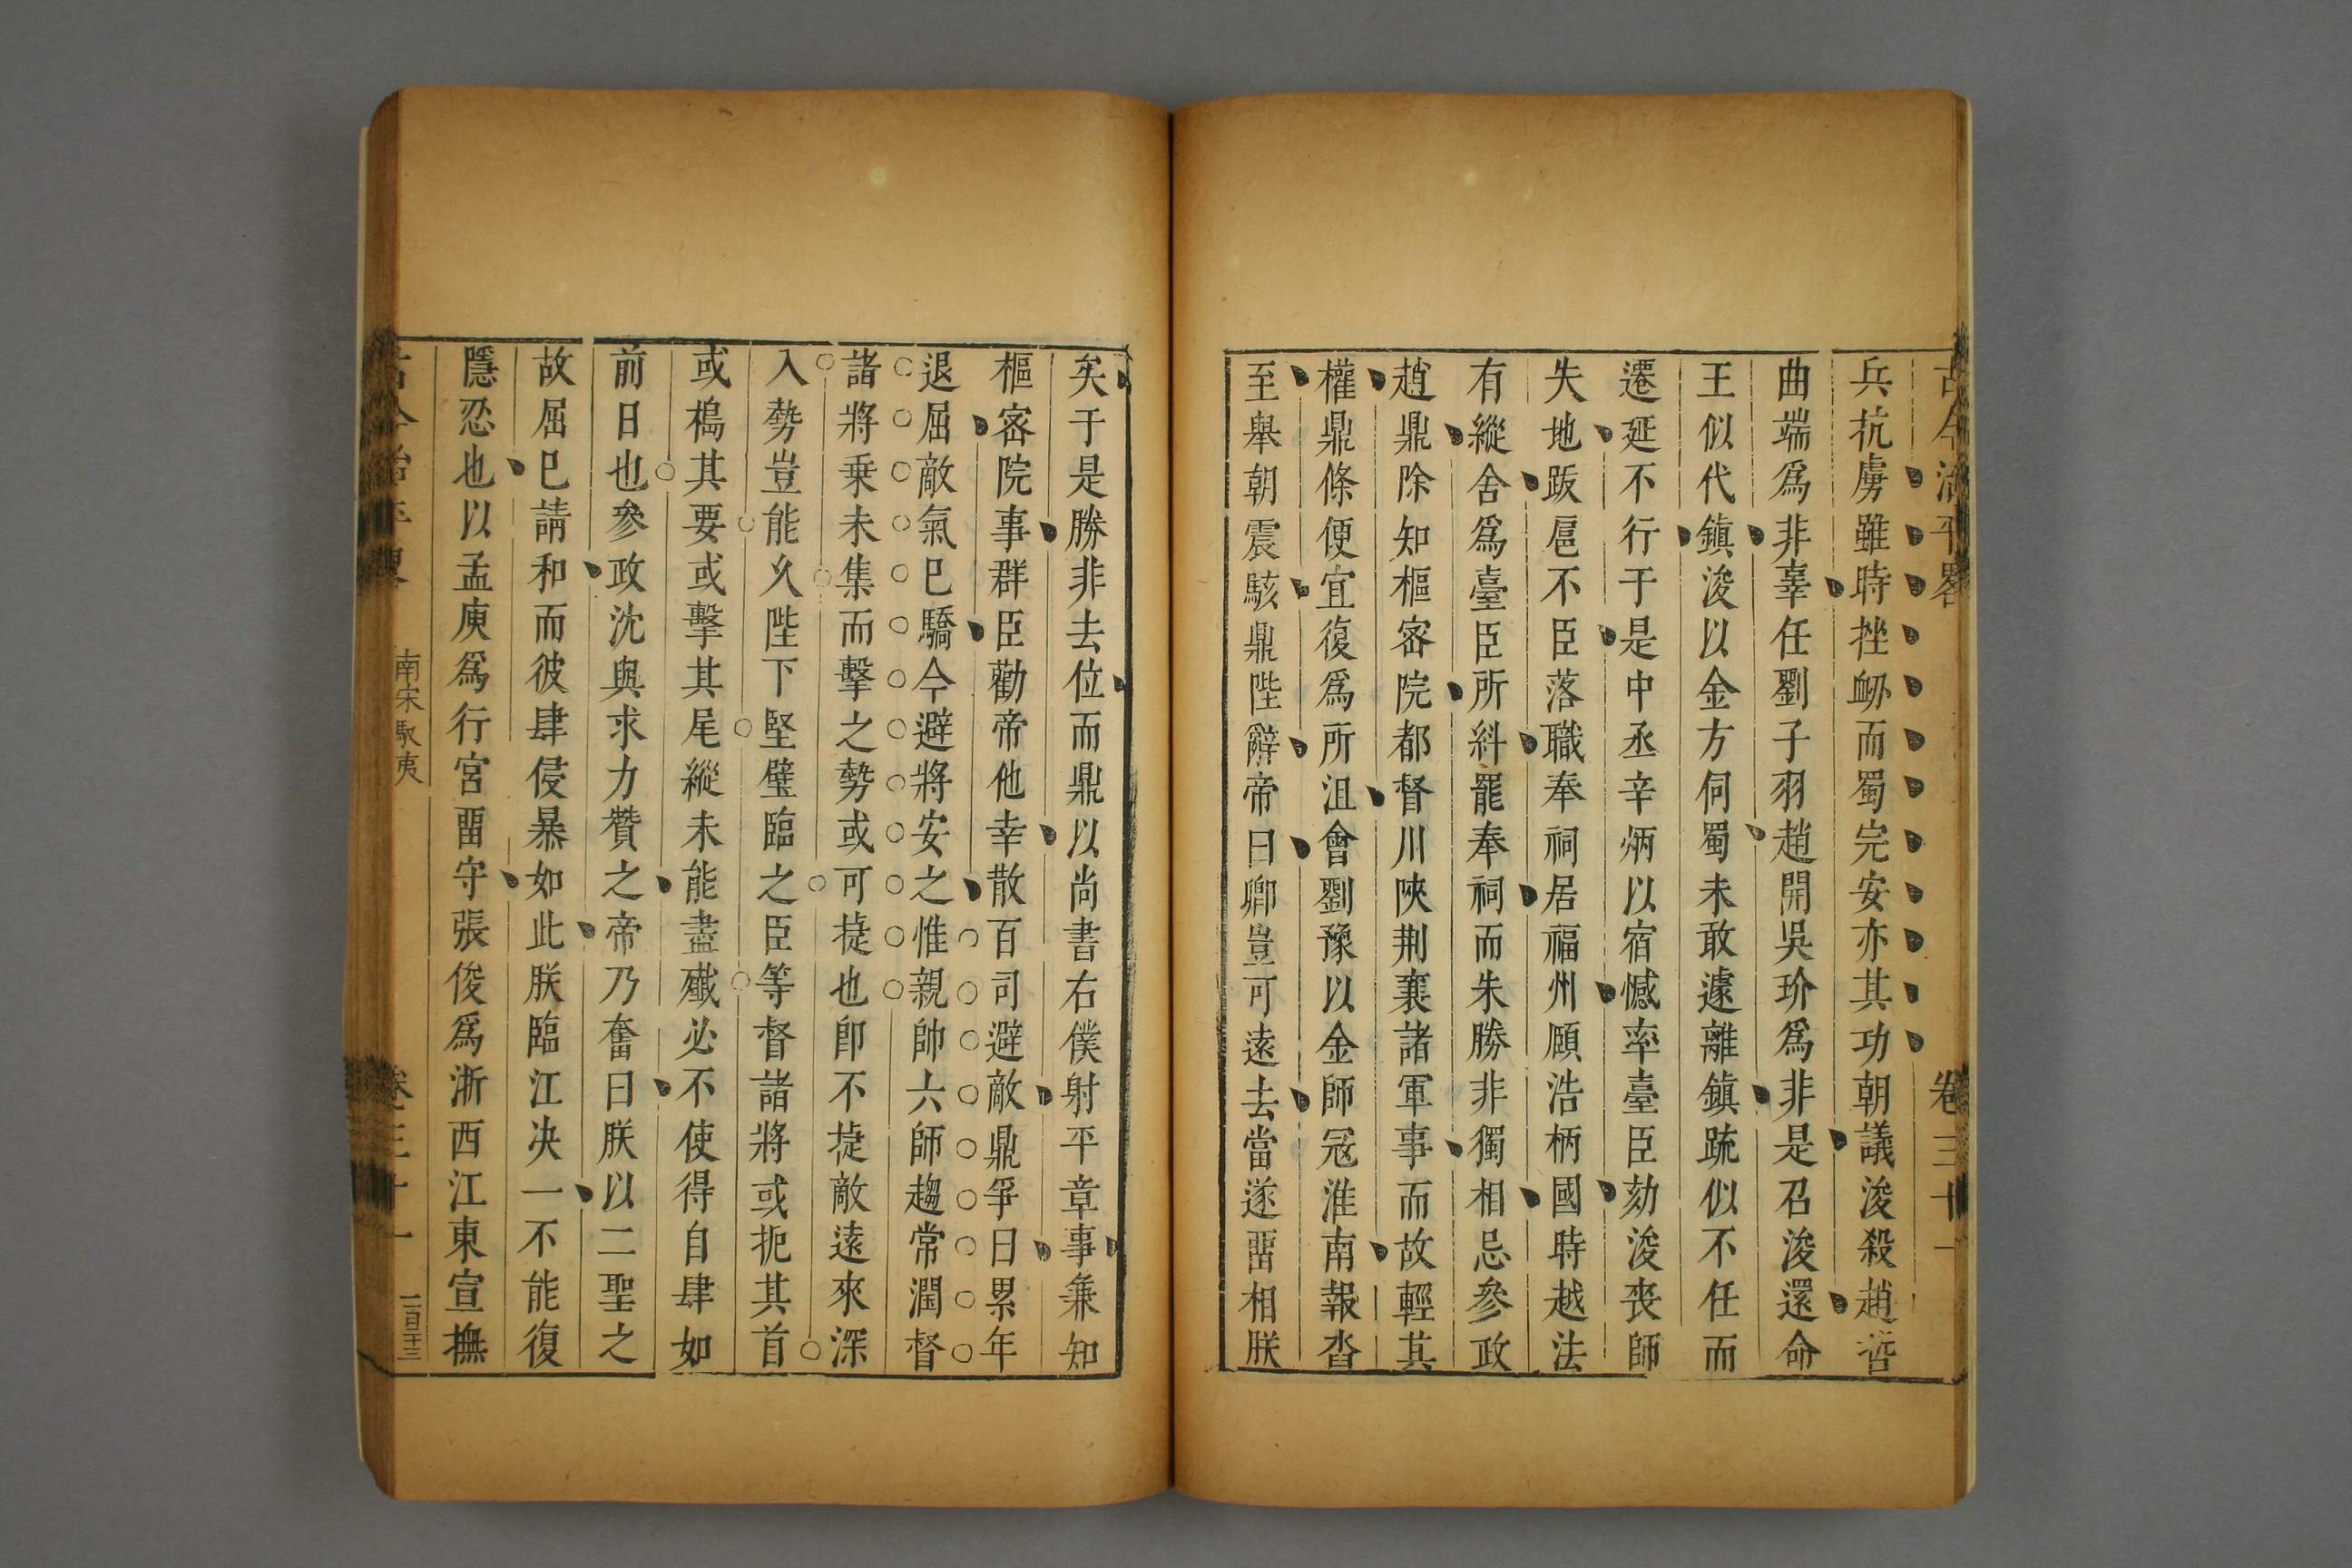 古今治平畧 卷三十一
兵抗虜雖時挫衂而蜀完安亦其功朝議浚殺趙哲
曲端爲非辜任劉子羽趙開吳玠爲非是召浚還命
王似代鎮浚以金方伺蜀未敢遽離鎮䟽似不任而
遷延不行于是中丞辛炳以宿憾率臺臣劾浚喪師
失地䟦扈不臣落職奉祠居福州頤浩柄國時越法
有縱舍爲臺臣所糾罷奉祠而朱勝非獨相忌參政
趙鼎除知樞密院都督川陝荆襄諸軍事而故輕其
權鼎條便宜復爲所沮會劉豫以金師冦淮南報沓
至舉朝震駭鼎陛辭帝曰卿豈可遠去當遂畱相朕
矣于是勝非去位而鼎以尚書右僕射平章事兼知
樞密院事群臣勸帝他幸散百司避敵鼎爭曰累年
退屈敵氣巳驕今避將安之惟親帥六師趨常潤督
諸將乗未集而擊之勢或可㨗也即不㨗敵遠來深
入勢豈能久陛下堅璧臨之臣等督諸將或扼其首
或搗其要或擊其尾縱未能盡殲必不使得自肆如
前日也參政沈與求力贊之帝乃奮曰朕以二聖之
故屈巳請和而彼肆侵暴如此朕臨江决一不能復
隱忍也以孟庾爲行宮畱守張俊爲浙西江東宣撫
古今治平畧 南宋馭夷 卷三十一 二百三十三